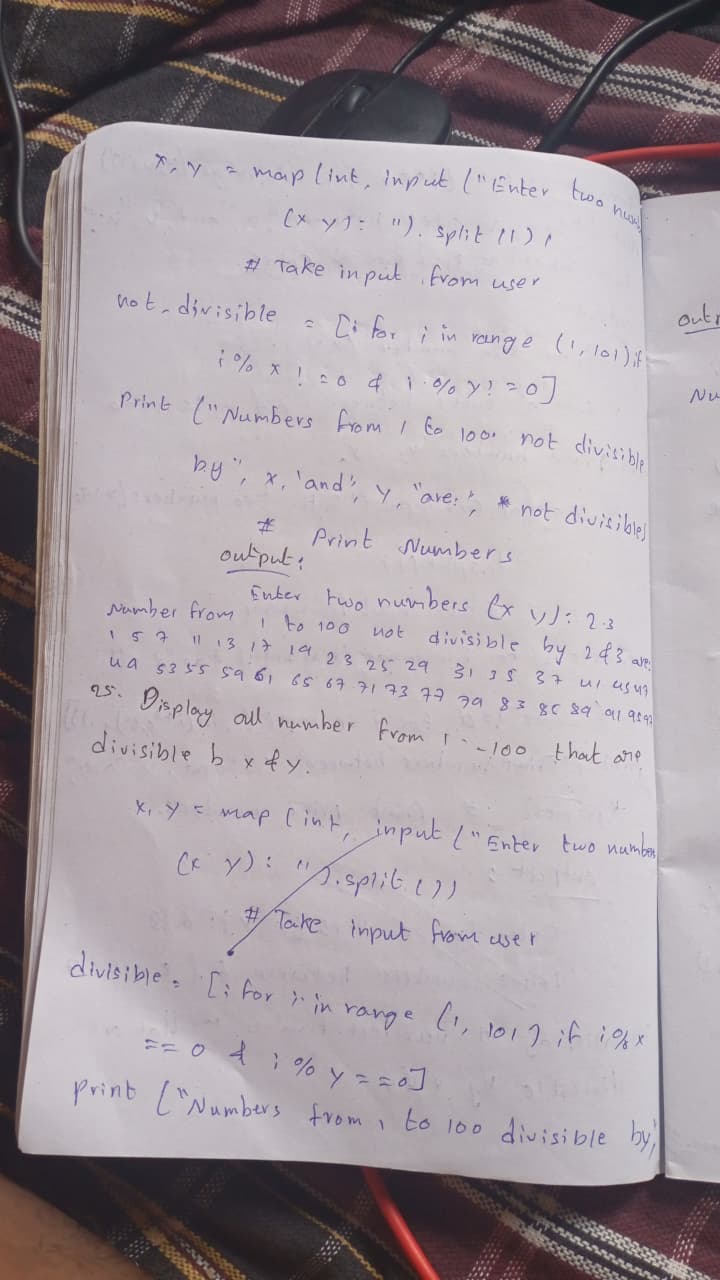 x, y = map (int, input ("Enter two num
(x y): "). split ( ) )
# Take input from user
not_divisible = [i for i in range (1, 101) if
i % x ! = 0 & i % y ! = 0]
Print ("Numbers from 1 to 100 not divisible
by", x, 'and', y, "are:", * not divisible)
# Print Numbers
output:
Enter two numbers (x y): 2 3
Number from 1 to 100 not divisible by 2 & 3 are:
1 5 7 11 13 17 19 23 25 29 31 35 37 41 43 47
49 53 55 59 61 65 67 71 73 77 79 83 85 89 91 95 97
25. Display all number from 1 - 100 that are
divisible b x & y.
x, y = map (int, input ("Enter two number
(x y): "). split ( ) )
# Take input from user
divisible = [i for i in range (1, 101) if i % x
== 0 & i % y == 0]
print ("Numbers from 1 to 100 divisible by",
outp
Nu